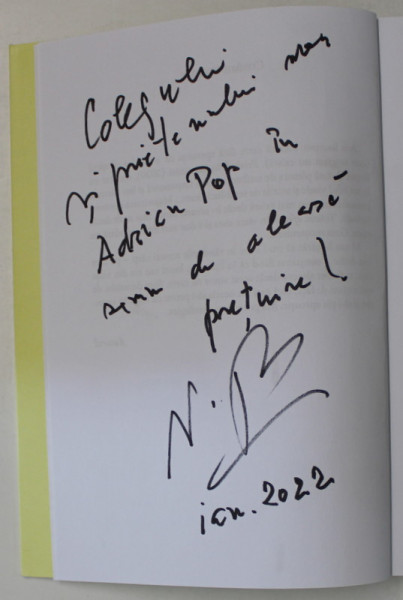 Colegului
și prietenului meu
Adrian Pop în
semn de aleasă
prețuire!
N. B
ian. 2022